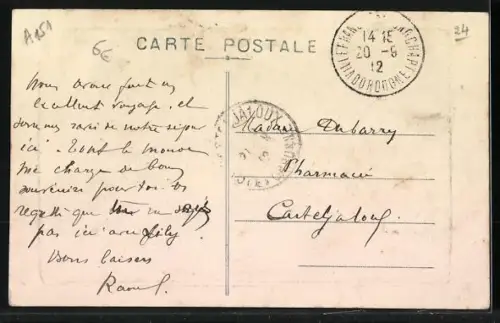 A151
6€
24
CARTE POSTALE
VILLEFRANCHE DORDOGNE
14 15
20 - 9
12
Nous avons fait un
excellent voyage, et
sommes ravis de notre séjour
ici. Tout le monde
me charge de bons
souvenirs pour toi et
regrette que tu ne sois
pas ici avec
Bons baisers
Raoul
JALOUX
Madame Dubarry
Pharmacie
Casteljaloux